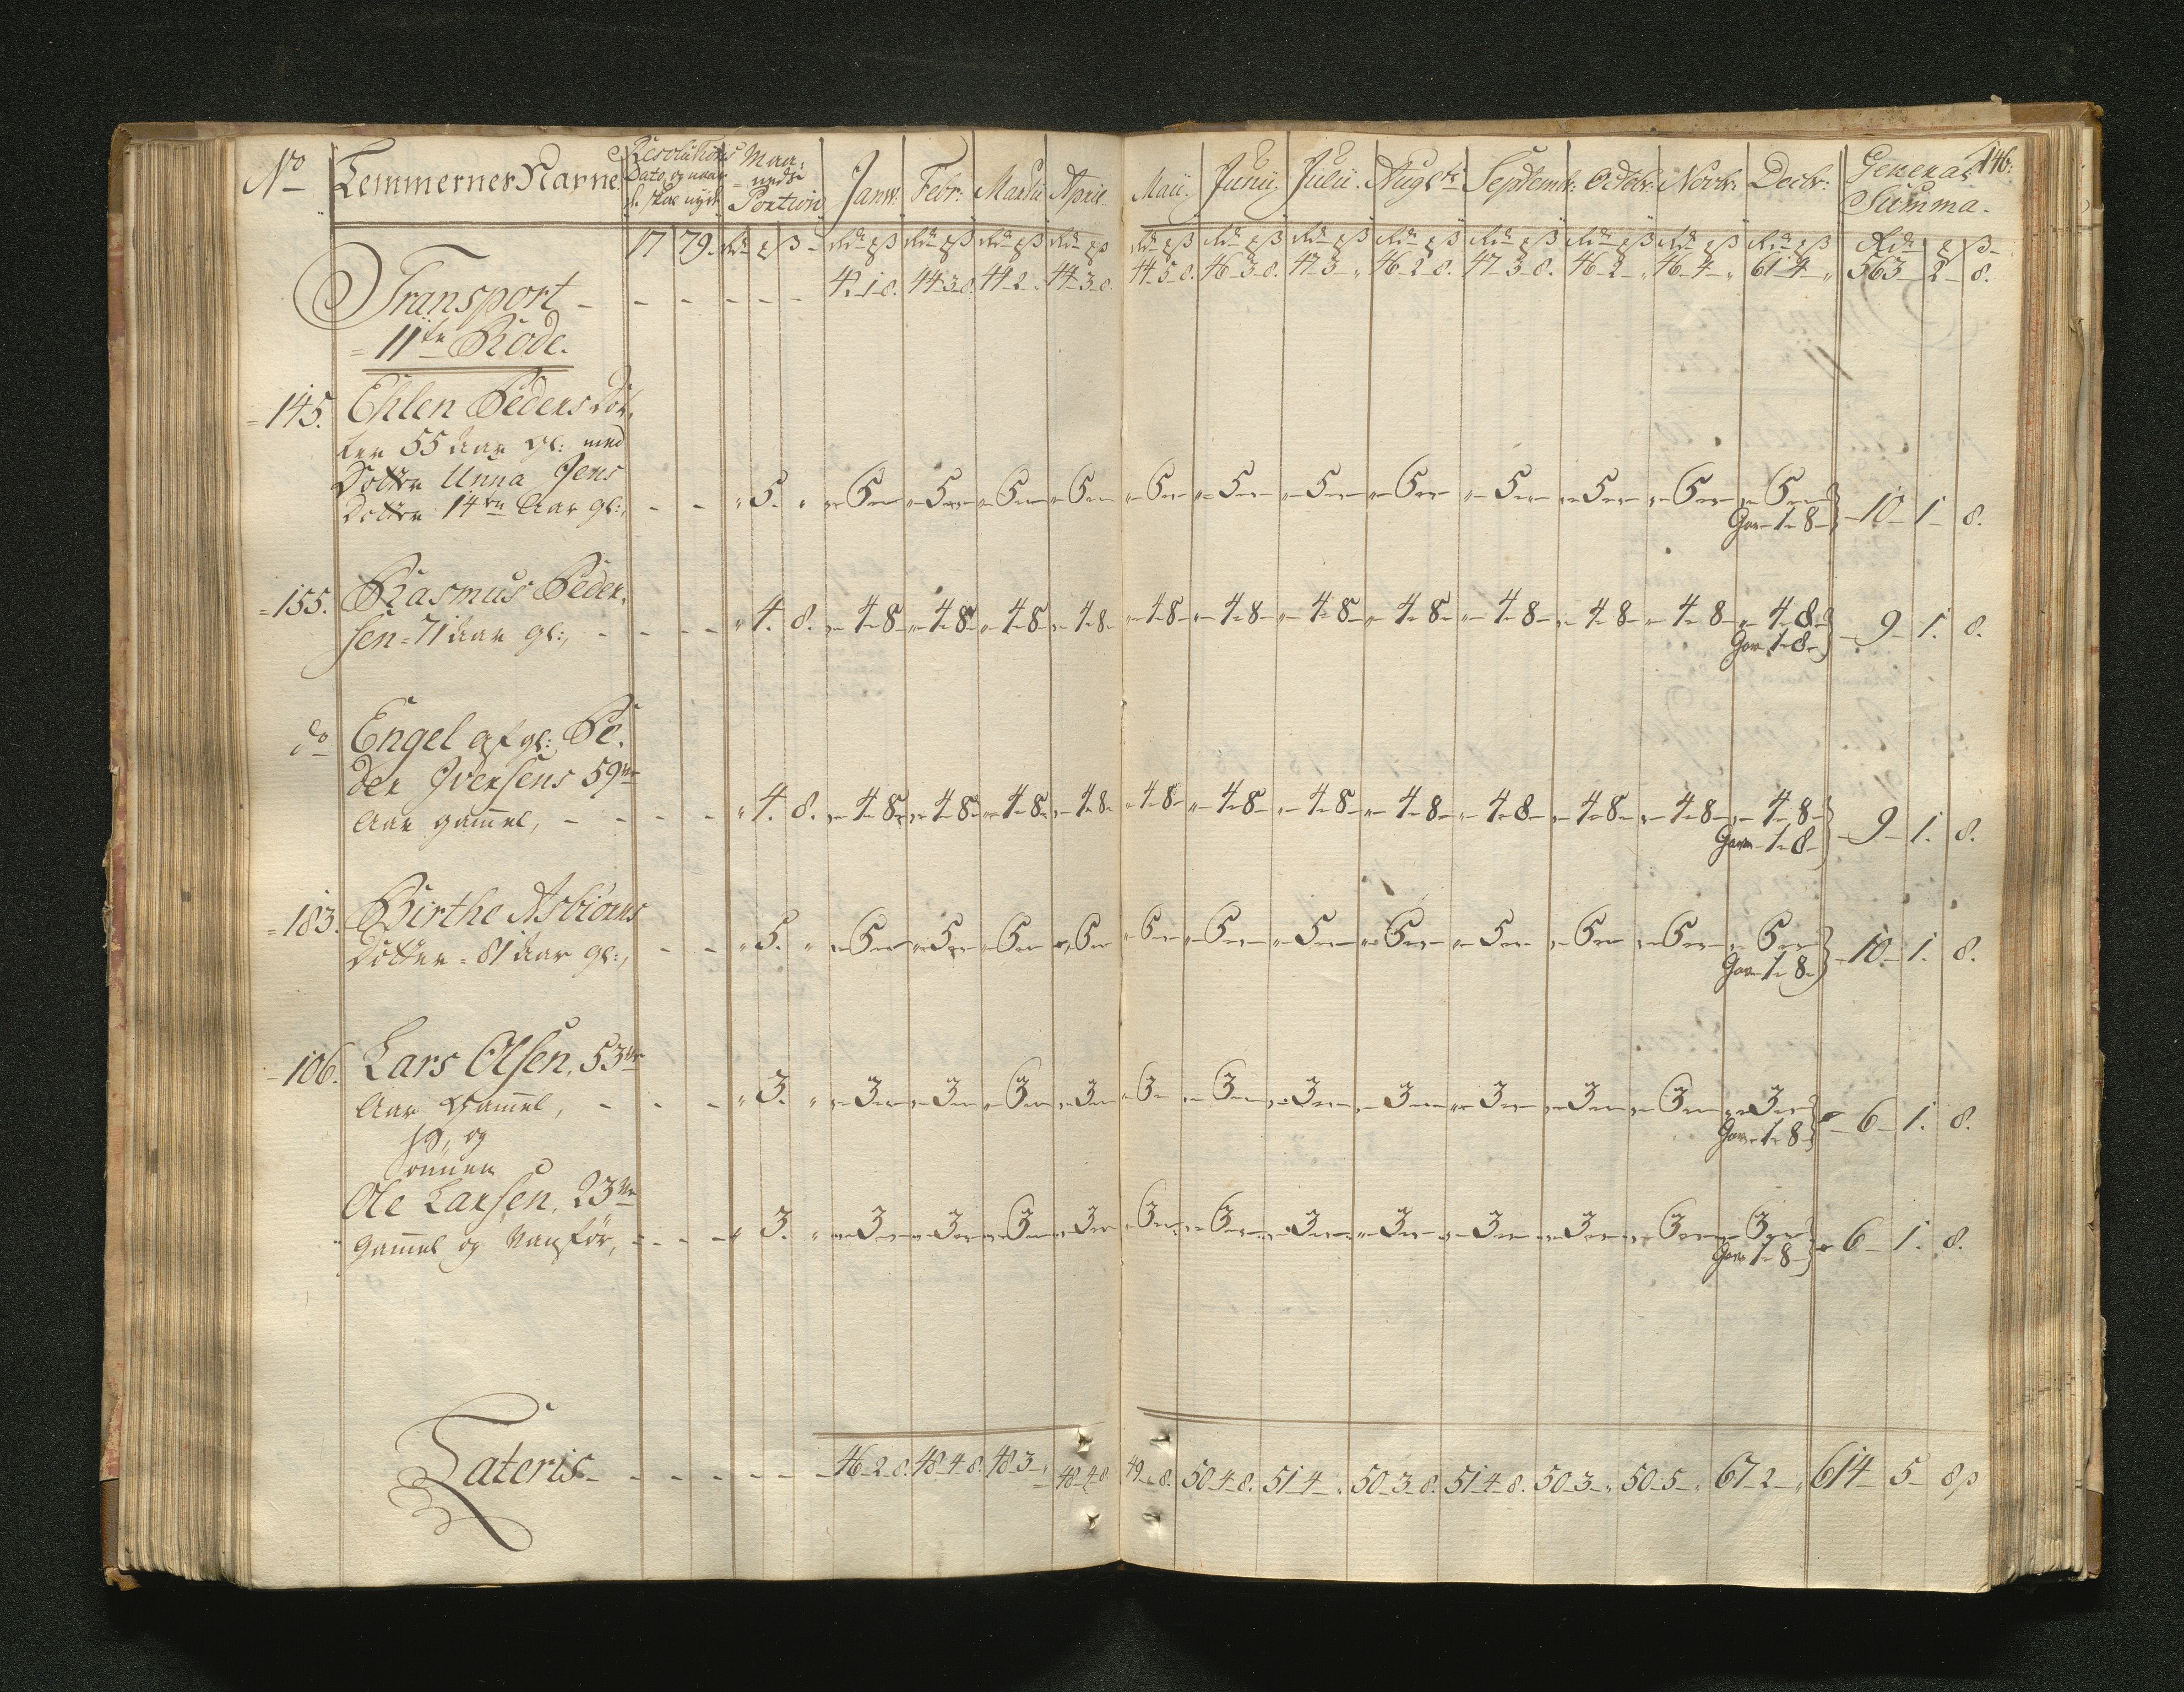 146.
No Lemmernes Navne. Resolutions Dato, og naar de skal nyde Maaneds Portion Janv: Febr: Martii April Maii. Junii Julii. Augsti Septembr: Octobr: Novbr: Decbr: General Summa.
17 79. Rdr ß Rdr ß Rdr ß Rdr ß Rdr ß Rdr ß Rdr ß Rdr ß Rdr ß Rdr ß Rdr ß Rdr ß Rdr ß Rdr ß
Transport - - - - - - - 42-1-8. 44-3-8. 44-2-" 44-3-8. 44-5-8. 46-3-8. 47-3-" 46-2-8. 47-3-8. 46-2-" 46-4-" 61-4-" 563-2-8.
= 11te Rode.
=145. Ehlen Peders Dot,
ter 55 Aar gl: med
Dotter Anna Jens
Dotter 14ten Aar gl:, - - " 5. " "-5-" "-5-" "-5-" "-5-" "-5-" "-5-" "-5-" "-5-" "-5-" "-5-" "-5-" "-5-"
Gav-1-8- } -10-1-8.
=155. Rasmus Peder,
sen = 71 Aar gl:, - - - - " 4. 8. "-4-8 "-4-8 "-4-8 "-4-8 "-4-8 "-4-8 "-4-8 "-4-8 "-4-8 "-4-8 "-4-8 "-4-8
Gav 1-8- } -9-1.8.
do Engel afgl: Pe,
der Iversens 59ve
Aar gammel, - - - - " 4. 8. "-4-8 "-4-8 "-4-8 "-4-8 "-4-8 "-4-8 "-4-8 "-4-8 "-4-8 "-4-8 "-4-8 "-4-8
Gav-1-8- } -9-1.8.
=183. Birthe Asbiörns
Dotter = 81 Aar gl:, - - " 5. " "-5-" "-5-" "-5-" "-5-" "-5-" "-5-" "-5-" "-5-" "-5-" "-5-" "-5-" "-5-"
Gav-1-8- } -10-1.8.
-106. Lars Olsen, 53ve
Aar Gammel, - - - " 3. " "-3-" "-3-" "-3-" "-3-" "-3-" "-3-" "-3-" "-3-" "-3-" "-3-" "-3-" "-3-"
Gav-1-8- } -6-1.8.
og
Sönnen
Ole Larsen, 23ve
Gammel og Vanför, - - - - " 3. " "-3-" "-3-" "-3-" "-3-" "-3-" "-3-" "-3-" "-3-" "-3-" "-3-" "-3-" "-3-"
Gav-1-8- } -6-1.8.
Lateris - - - - - - - 46-2-8. 48-4-8. 48-3-" 48-4-8. 49-"-8. 50-4-8. 51-4-" 50-3-8. 51-4-8. 50-3-" 50-5-" 67-2-" 614-5-8ß